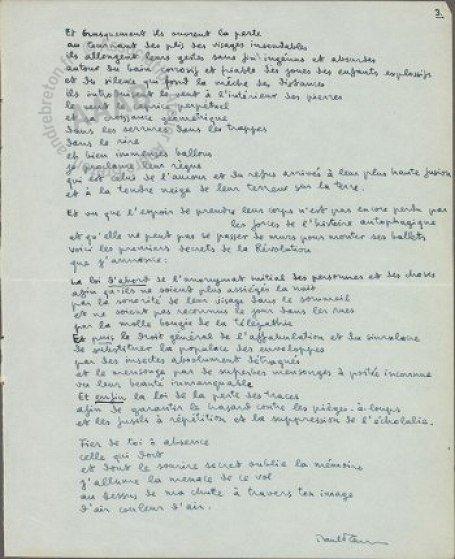 3.
Et brusquement ils ouvrent la perle
au tournant des plis des visages insondables
ils allongent leurs gestes sans fin ingénus et absurdes
autour du bain corrosif et friable des joues des enfants explosifs
et du silence qui fond la mèche des distances
ils introduisent le vent à l'intérieur des pierres
le vent le caprice perpétuel
et sa croissance géométrique
dans les serrures dans les trappes
dans le rire
et bien immenses ballons
je proclame leur règne
qui est celui de l'amour et du refus arrivés à leur plus haute fusion
et à la tendre neige de leur terreur sur la terre.
Et vu que l'espoir de prendre leur corps n'est pas encore perdu par
les forces de l'histoire autophagique
et qu'elle ne peut pas se passer de murs pour monter ses ballets
voici les premiers secrets de la Révolution
que j'annonce :
La loi d'abord de l'anonymat initial des personnes et des choses
afin qu'ils ne soient plus assiégés la nuit
par la sonorité de leur visage dans le sommeil
et ne soient pas reconnus le jour dans les rues
par la molle bougie de la télépathie
Et puis le droit général de l'affabulation et du simulacre
de substituer la populace des enveloppes
par des insectes absolument détraqués
et le mensonge par de superbes mensonges à portée inconnue
vu leur beauté immanquable
Et enfin la loi de la perte des traces
afin de garantir le hasard contre les pièges-à-loups
et les fusils à répétition et la suppression de l'écholalie.
Fier de toi à absence
celle qui dort
et dont le sourire secret oublie la mémoire
j'allume la menace de ce vol
au dessus de ma chute à travers ton image
d'air couleur d'air.
andrebreton.fr